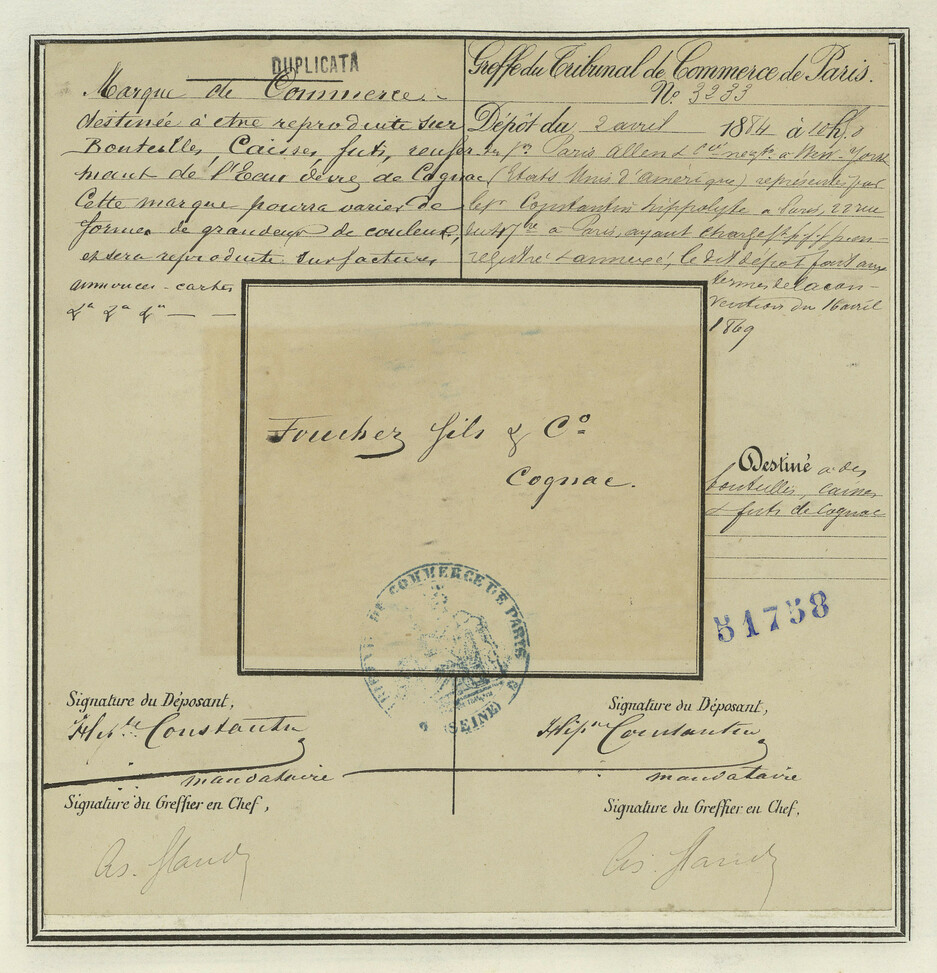 DUPLICATA
Marque de Commerce
destinée à etre reproduite sur
Bouteilles, Caisses, futs, renfer
mant de l'Eau de vie de Cognac
Cette marque pourra varier de
forme de grandeur de couleur,
et sera reproduite sur factures
annonces - cartes
Greffe du Tribunal de Commerce de Paris.
No. 3233
Dépôt du 2 avril 1884 à 10h
Paris Allen & à New-York
(Etats Unis d'amérique) représentés par
le sr Constantin hippolyte à Paris, 22 rue
à Paris, ayant charge
registré & annexé, le dit dépôt fait aux
termes de la con-
vention du 16 avril
1869
Foucher fils & Co
Cognac.
Destiné à des
bouteilles, caisses
& futs de Cognac
DE COMMERCE DE PARIS
(SEINE)
51758
Signature du Déposant,
Hipte Constantin
mandataire
Signature du Greffier en Chef,
Signature du Déposant,
Hipte Constantin
mandataire
Signature du Greffier en Chef,